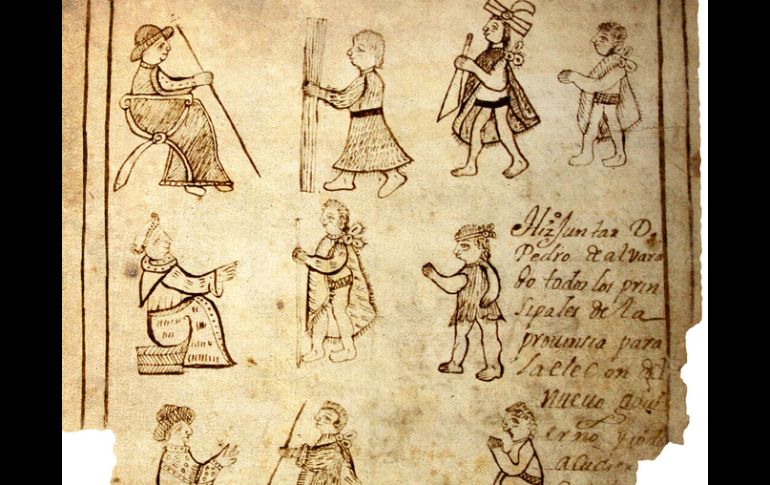 Hizo Juntar D.
Pedro de alvara
do todos los prin
sipales de la
prouinsia para
la elec on del
nueuo goui
erno y
acudi